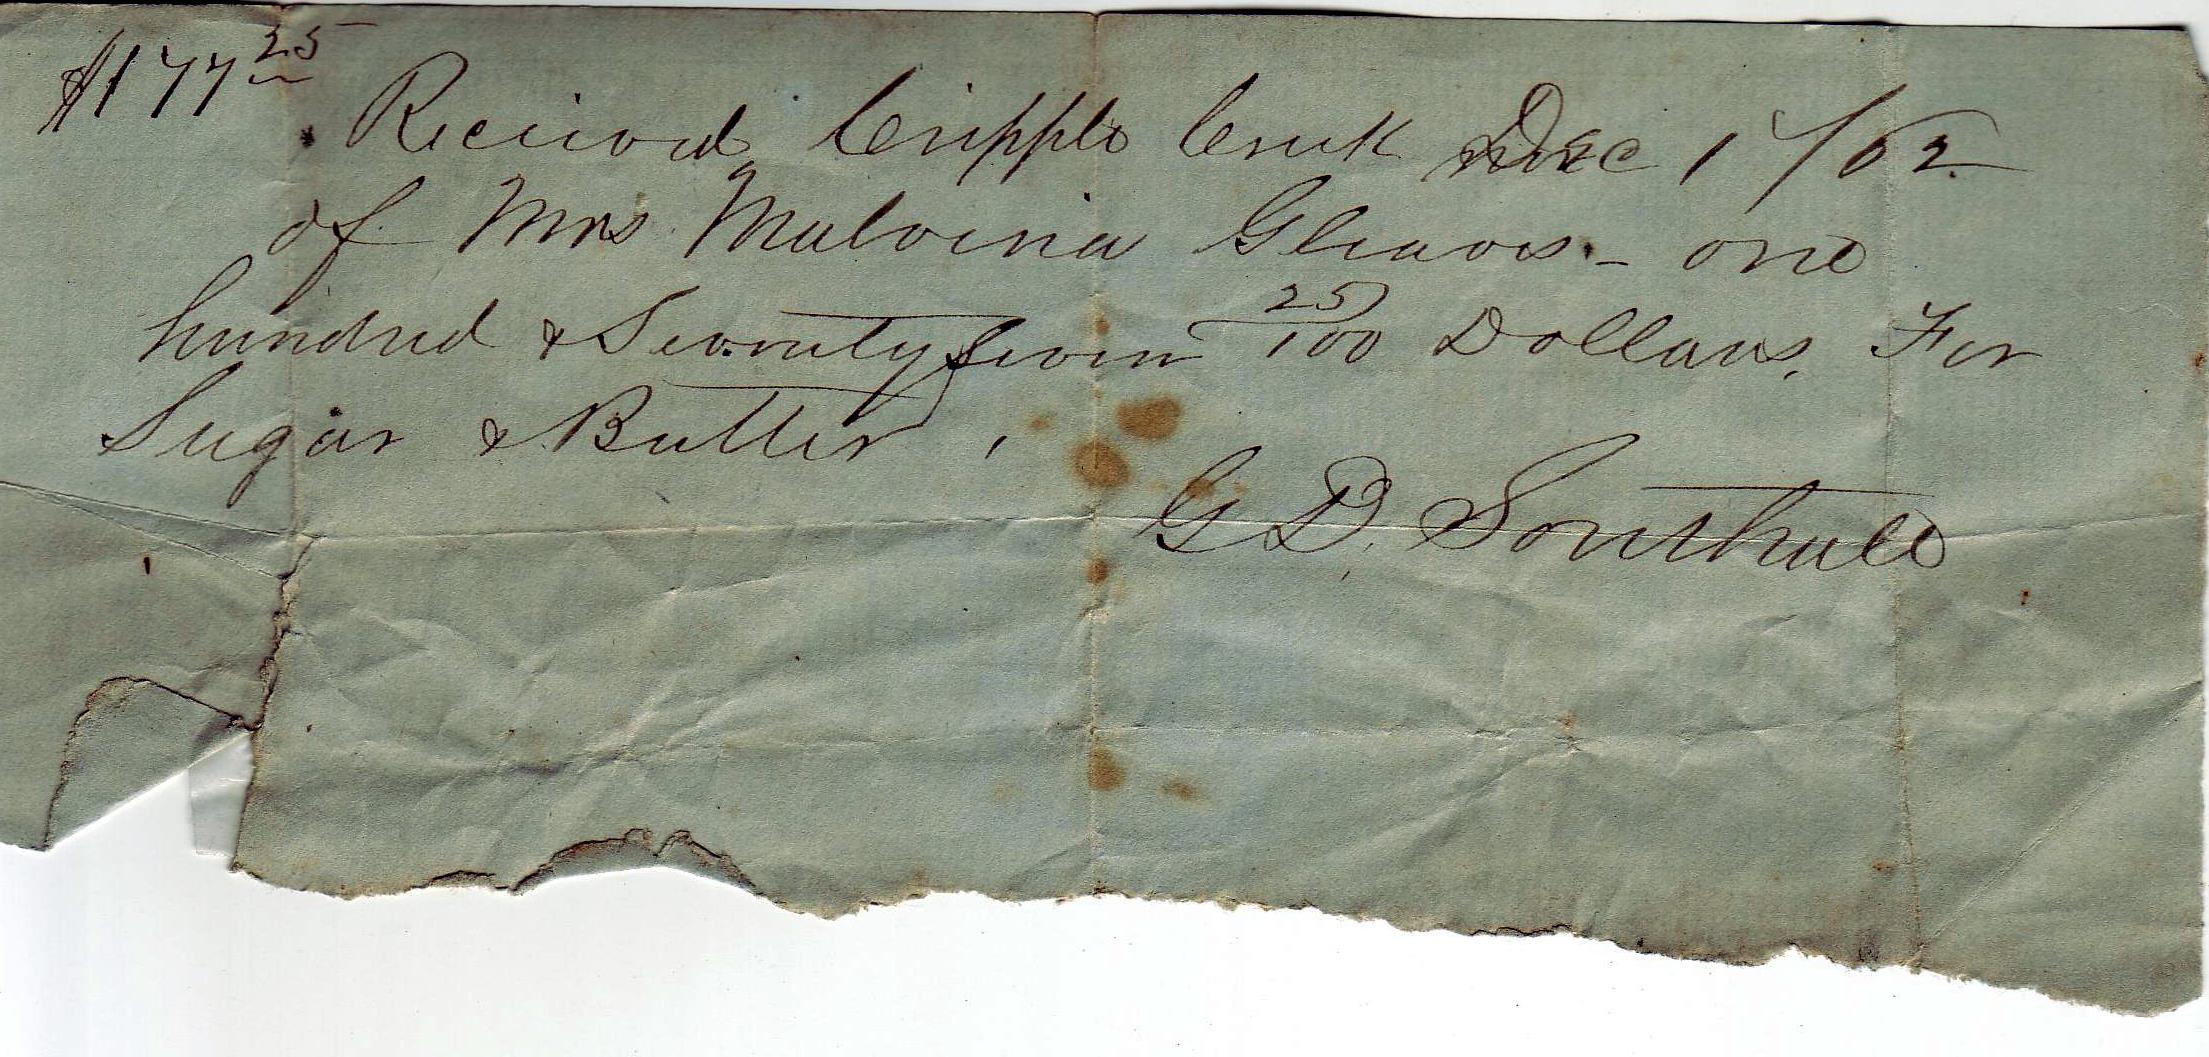 $177 25
Received Cripple Creek Dec 1 / 62
of Mrs Malvina Gleaves - one
hundred & Seventy seven 25/100 Dollars, For
Sugar & Butter,
G D. Southall